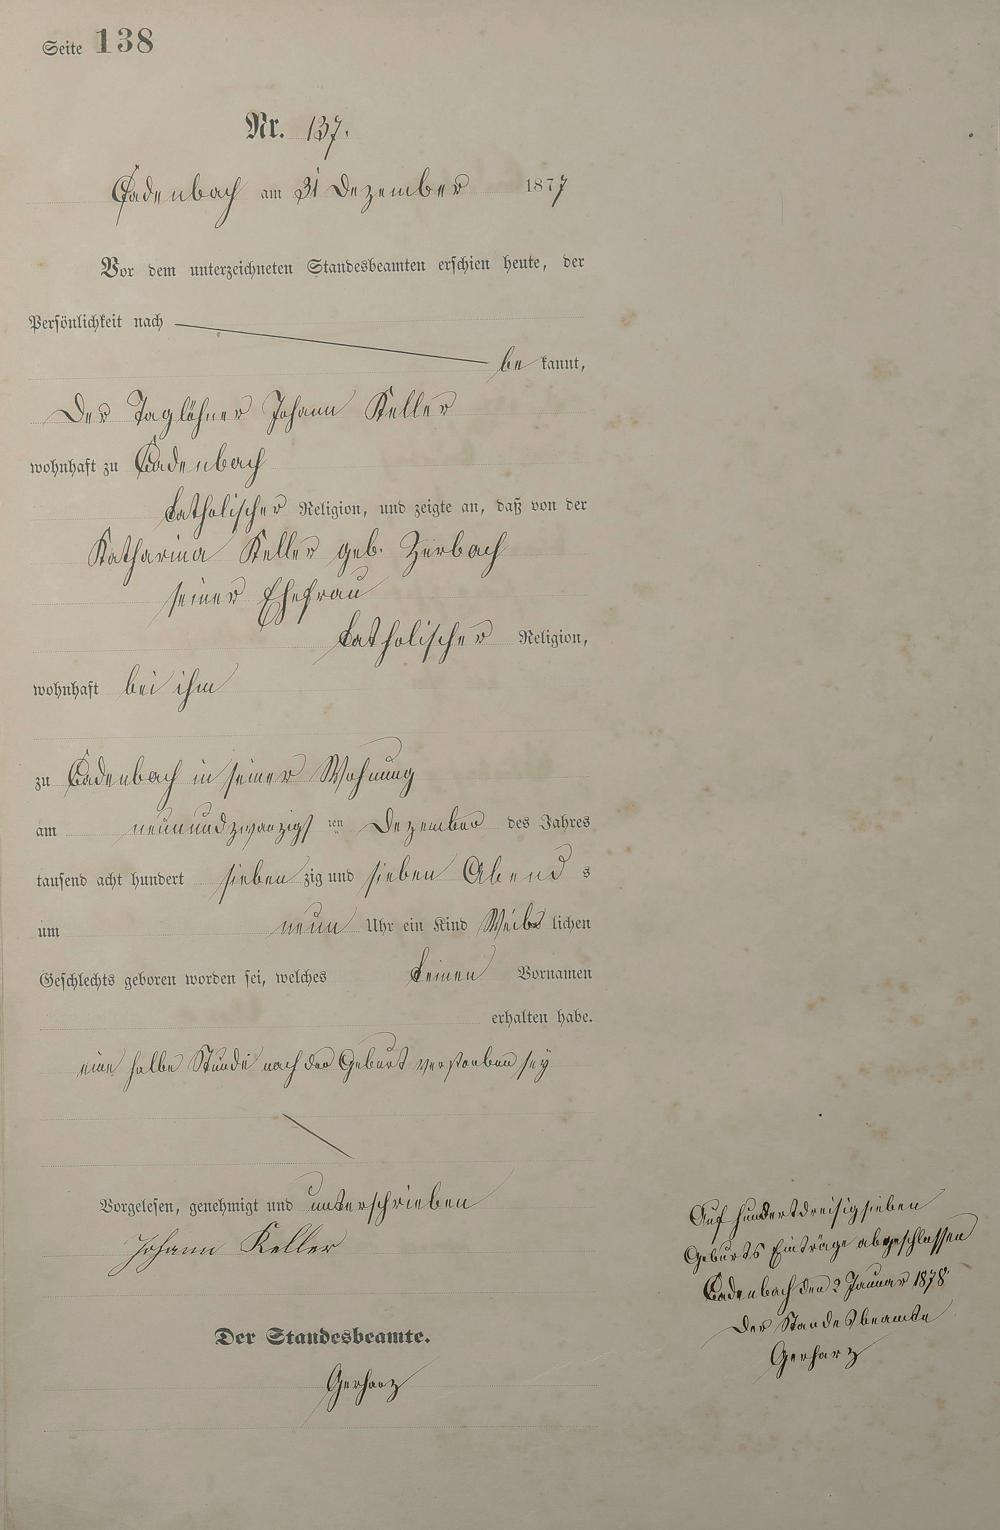 Seite 138
Nr. 137.
Cadenbach am 31 Dezember 1877
Vor dem unterzeichneten Standesbeamten erschien heute, der
Persönlichkeit nach
be kannt,
Der Taglöhner Johann Keller
wohnhaft zu Cadenbach
katholischer Religion, und zeigte an, daß von der
Katharina Keller geb. Zerbach
seiner Ehefrau
katholischer Religion,
wohnhaft bei ihm
zu Cadenbach in seiner Wohnung
am neunundzwanzigst ten Dezember des Jahres
tausend acht hundert sieben zig und sieben Abend s
um neun Uhr ein Kind Weib lichen
Geschlechts geboren worden sei, welches keinen Vornamen
erhalten habe.
eine halbe Stunde nach der Geburt verstorben sey
Vorgelesen, genehmigt und unterschrieben
Johann Keller
Der Standesbeamte.
Gerharz
Auf hundertdreisigsieben
Geburts Einträge abgeschlossen
Cadenbach den 2 Januar 1878
Der Standesbeamte
Gerharz